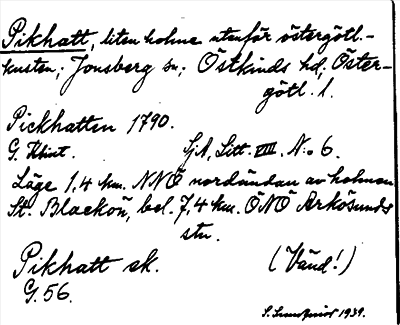 Pikhatt, liten holme utanför östergötl.-
kusten; Jonsberg sn; Östkinds hd, Öster-
götl. l.
Pickhatten 1790.
G. Klint. SjA, Litt. VIII. N:o 6.
Läge 1,4 km. NNÖ nordändan av holmen
St. Blackön, bel. 7,4 km. ÖNÖ Arkösunds
stn.
Pikhatt sk. (Vänd!)
G. 56.
1939.